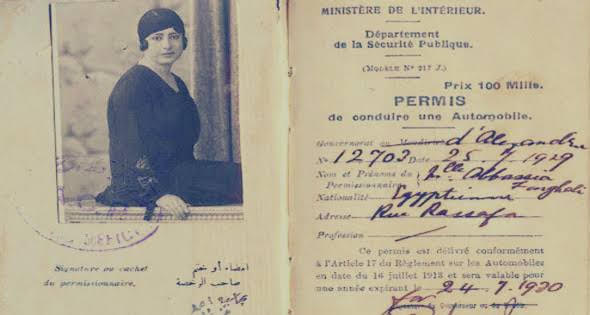 Signature ou cachet
du permissionnaire.
امضاء أو ختم
صاحب الرخصة
MINISTÈRE DE L'INTÉRIEUR.
Département
de la Sécurité Publique.
(MODÈLE N° 217 J.)
Prix 100 Mills.
PERMIS
de conduire une Automobile.
Gouvernorat ou Moudirieh d'Alexandrie
N° 12703 Date 25. 7 1929
Nom et Prénoms du Mlle Abbassia
Permissionnaire
Nationalité Egyptienne
Adresse Rue Rassafa
Profession
Ce permis est délivré conformément
à l'Article 17 du Règlement sur les Automobiles
en date du 16 juillet 1913 et sera valable pour
une année expirant le 24. 7. 1930